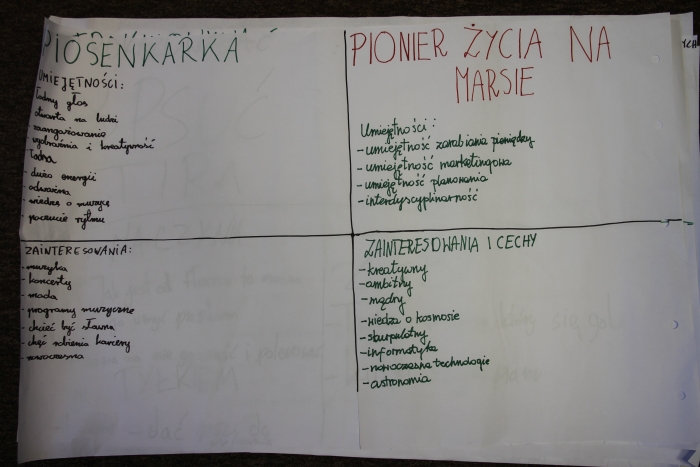 PIOSENKARKA
UMIEJĘTNOŚCI:
- ładny głos
- otwarta na ludzi
- zaangażowanie
- wyobraźnia i kreatywność
- ładna
- dużo energii
- odważna
- wiedza o muzyce
- poczucie rytmu
ZAINTERESOWANIA:
- muzyka
- koncerty
- moda
- programy muzyczne
- chcieć być sławna
- chęć robienia kariery
- nowoczesna
PIONIER ŻYCIA NA
MARSIE
Umiejętności:
- umiejętność zarabiania pieniędzy
- umiejętność marketingowa
- umiejętność planowania
- interdyscyplinarność
ZAINTERESOWANIA I CECHY
- kreatywny
- ambitny
- mądry
- wiedza o kosmosie
- skurpulatny
- informatyka
- nowoczesne technologie
- astronomia